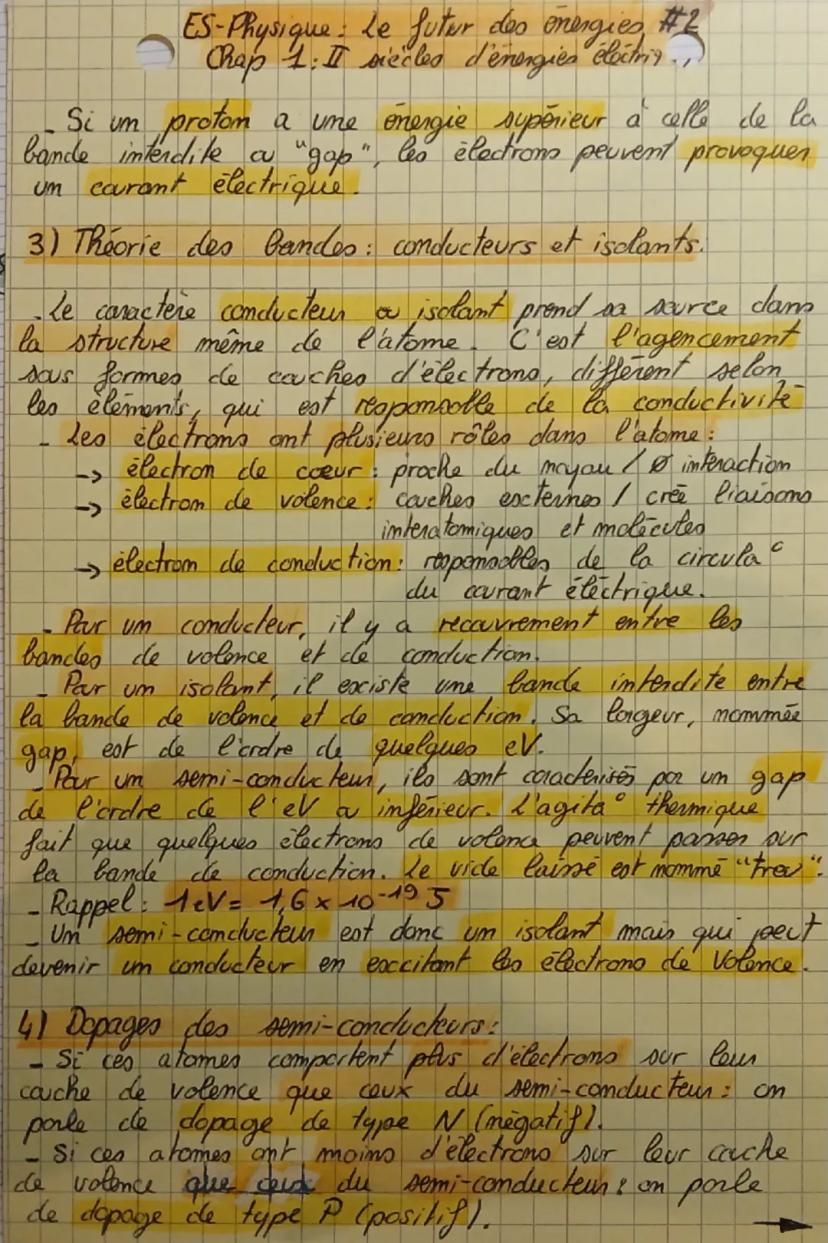 ES-Physique : Le futur des énergies #2
Chap 1 : II siècles d'énergies électriq..,
- Si un proton a une énergie supérieur à celle de la
bande interdite ou "gap", les électrons peuvent provoquer
un courant électrique.
3) Théorie des bandes : conducteurs et isolants.
- Le caractère conducteur ou isolant prend sa source dans
la structure même de l'atome. C'est l'agencement
sous formes de couches d'électrons, différent selon
les éléments, qui est responsable de la conductivité
- Les électrons ont plusieurs rôles dans l'atome :
-> électron de cœur : proche du noyau / Ø interaction
-> électron de valence : couches externes / crée liaisons
interatomiques et molécules
-> électron de conduction : responsables de la circula°
du courant électrique.
- Pour un conducteur, il y a recouvrement entre les
bandes de valence et de conduction.
- Pour un isolant, il existe une bande interdite entre
la bande de valence et de conduction. Sa largeur, nommée
gap, est de l'ordre de quelques eV.
- Pour un semi-conducteur, ils sont caractérisés par un gap
de l'ordre de l'eV ou inférieur. L'agita° thermique
fait que quelques électrons de valence peuvent passer sur
la bande de conduction. Le vide laissé est nommé "trou".
- Rappel : 1 eV = 1,6 × 10⁻¹⁹ J
- Un semi-conducteur est donc un isolant mais qui peut
devenir un conducteur en excitant les électrons de valence.
4) Dopages des semi-conducteurs :
- Si ces atomes comportent plus d'électrons sur leur
couche de valence que ceux du semi-conducteur : on
parle de dopage de type N (négatif).
- Si ces atomes ont moins d'électrons sur leur couche
de valence que ceux du semi-conducteur : on parle
de dopage de type P (positif).